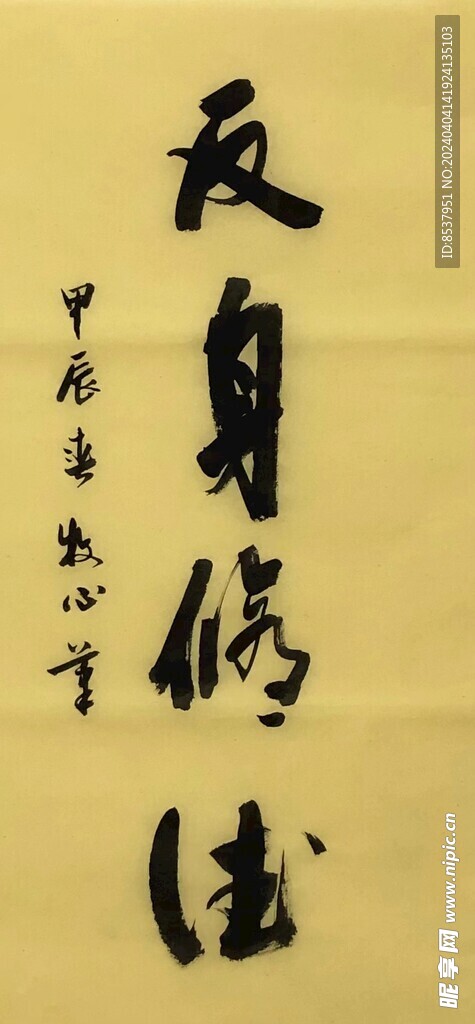 反身修德
甲辰春 牧心笔
ID:8537951 NO:20240404141924135103
昵享网 www.nipic.cn